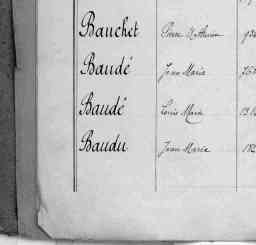 Bauchet Pierre Mathurin
Baudé Jean Marie
Baudé Louis Marie
Baudu Jean Marie